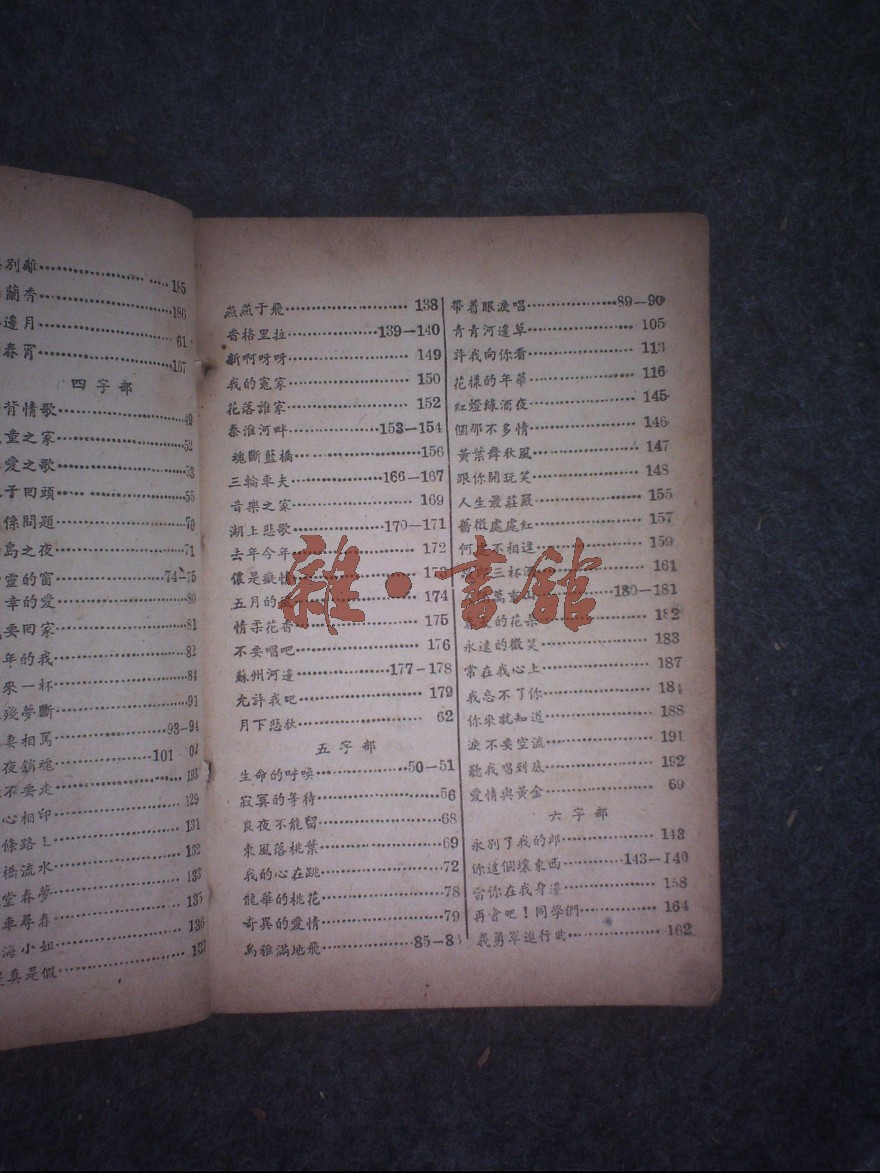 別離 185
蘭香 186
邊月 61
春宵 167
四字部
背情歌 49
童之家 52
愛之歌 53
子回頭 55
係問題 70
島之夜 71
靈的窗 74-75
幸的愛 80
要回家 81
年的我 82
來一杯 84
殘夢斷 91
妻相罵 93-94
夜銷魂 101
不要走
心相印 129
條路 131
橋流水 132
堂春夢 133
車尋春 135
海小姐 136
是真是假 137
燕燕于飛 138
香格里拉 139—140
新啊呀呀 149
我的寃家 150
花落誰家 152
秦淮河畔 153—154
魂斷藍橋 156
三輪車夫 166—167
音樂之家 169
湖上悲歌 170—171
去年今年 172
像是癡情
五月的 174
情柔花香 175
不要唱吧 176
蘇州河邊 177—178
允許我吧 179
月下悲秋 62
五字部
生命的呼喚 50—51
寂寞的等待 56
良夜不能留 68
東風落桃葉 69
我的心在跳 72
龍華的桃花 78
奇異的愛情 79
烏鴉滿地飛 85—8
帶着眼淚唱 89—90
青青河邊草 105
許我向你看 113
花樣的年華 116
紅燈綠酒夜 145
個那不多情 146
黃葉舞秋風 147
跟你開玩笑 148
人生最莊嚴 155
薔薇處處紅 157
何 不相逢 159
三杯酒 161
萬重山 180—181
的花朵 182
永遠的微笑 183
常在我心上 187
我忘不了你 184
你來就知道 188
淚不要空流 191
聽我唱到底 192
愛情與黃金 69
六字部
永別了我的郎 143
你這個壞東西 143—140
當你在我身邊 158
再會吧！同學們 164
義勇軍進行曲 162
雜·書館